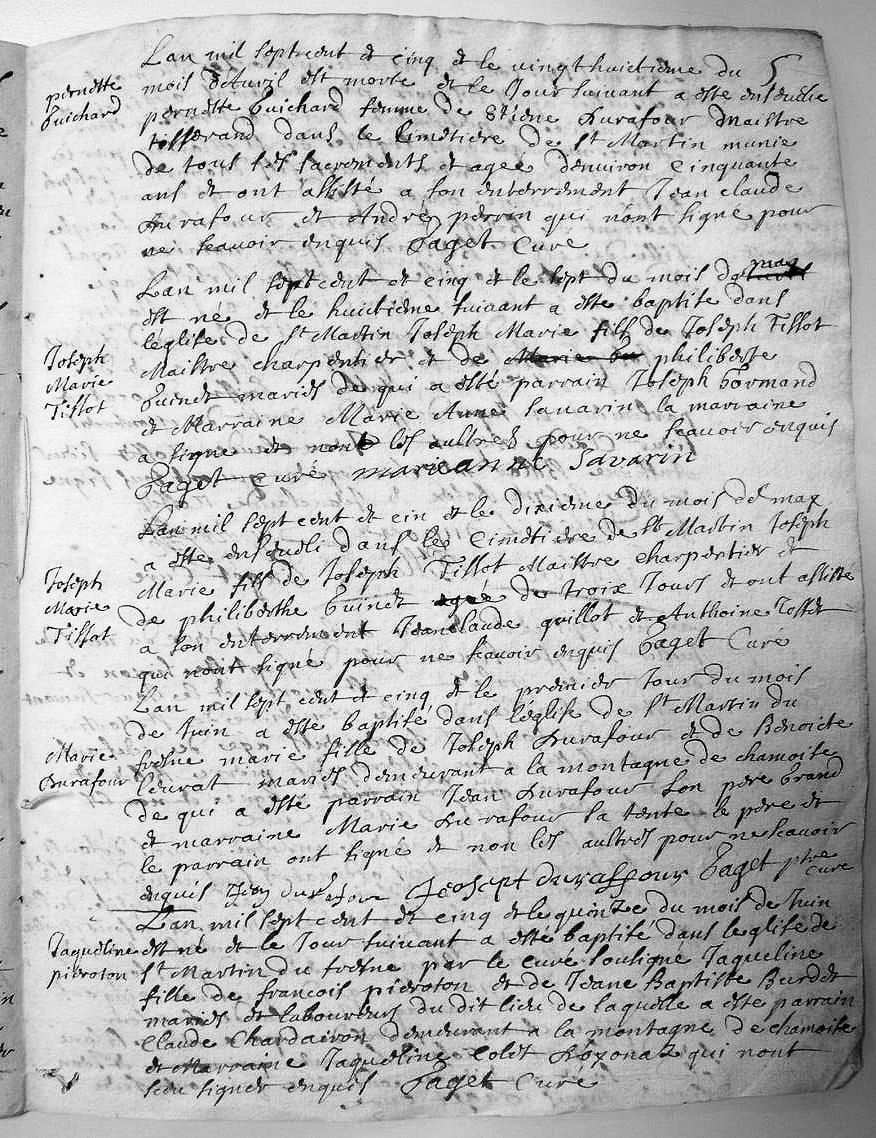 5
Lan mil septcent et cinq et le vingthuictieme du
pernette
Guichard
mois d'Avril est morte et le Jour suivant a esté ensevelie
pernette Guichard femme de Etiene Durafour maistre
tisserand dans le Cimetiere de St Martin munie
de tous les sacrements et agee denviron Cinquante
ans et ont assisté a son enterrement Jean claude
Durafour et André perrin qui nont signé pour
ne scavoir enquis Paget Curé
Lan mil septcent et cinq et le sept du mois de may
est né et le huictieme suivant a esté baptisé dans
léglise de St Martin Joseph Marie fils de Joseph Tissot
Joseph
Marie
Tissot
Maistre charpentier et de philiberte
Guinet mariés de qui a esté parrain Joseph Gormand
et Marraine Marie Anne Savarin la marraine
a signé et non les aultres pour ne scavoir enquis
Paget curé marie anne Savarin
Lan mil sept cent et cin et le dixieme du mois de may
a esté enseveli dans le Cimetiere de St Martin Joseph
Joseph
Marie
Tissot
Marie fils de Joseph Tissot Maistre charpentier et
de philiberthe Guinet agé de troix Jours et ont assisté
a son enterrement Jeanclaude guillot et Anthoine Tosset
qui nont signé pour ne scavoir enquis Paget Curé
Lan mil sept cent et cinq et le premier Jour du mois
de Juin a esté baptisé dans léglise de St Martin du
Marie
Durafour
fresne marie fille de Joseph Durafour et de Benoicte
Levrat mariés demeurant a la montagne de chamoise
de qui a esté parrain Jean Durafour son pere grand
et marraine Marie Durafour sa tente le pere et
le parrain ont signé et non les aultres pour ne scavoir
enquis Joseph duraffour Paget ptre
Curé
Lan mil sept cent et cinq et le quinze du mois de Juin
Jaqueline
pieroton
est né et le Jour suivant a esté baptisé dans leglise de
St Martin du fresne par le curé soussigné Jaqueline
fille de francois pieroton et de Jeane Baptiste Burdet
mariés et laboureurs du dit lieu de laquelle a esté parrain
Claude Chardairon demeurant a la montagne de chamoise
et Marraine Jaqueline Colet Doyonax qui nont
sceu signer enquis Paget Curé